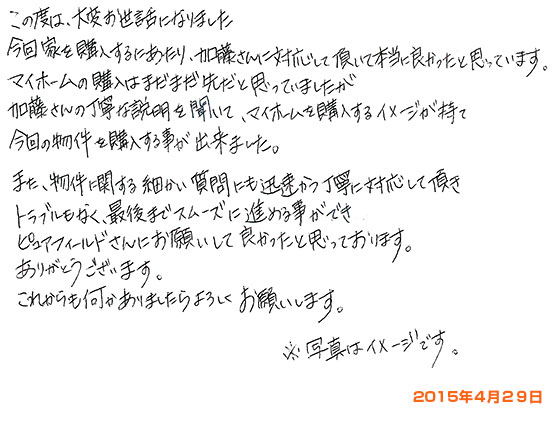 この度は、大変お世話になりました
今回家を購入するにあたり、加藤さんに対応して頂いて本当に良かったと思っています。
マイホームの購入はまだまだ先だと思っていましたが
加藤さんの丁寧な説明を聞いて、マイホームを購入するイメージが持て
今回の物件を購入する事が出来ました。
また、物件に関する細かい質問にも迅速かつ丁寧に対応して頂き
トラブルもなく、最後までスムーズに進める事ができ
ピュアフィールドさんにお願いして良かったと思っております。
ありがとうございます。
これからも何かありましたらよろしくお願いします。
※写真はイメージです。
2015年4月29日